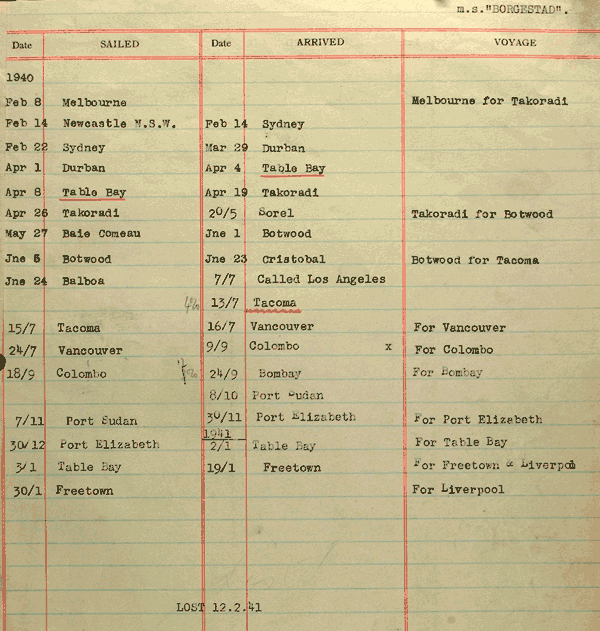 m.s."BORGESTAD".
Date SAILED Date ARRIVED VOYAGE
1940
Feb 8 Melbourne Melbourne for Takoradi
Feb 14 Newcastle N.S.W. Feb 14 Sydney
Feb 22 Sydney Mar 29 Durban
Apr 1 Durban Apr 4 Table Bay
Apr 8 Table Bay Apr 19 Takoradi
Apr 26 Takoradi 20/5 Sorel Takoradi for Botwood
May 27 Baie Comeau Jne 1 Botwood
Jne 5 Botwood Jne 23 Cristobal Botwood for Tacoma
Jne 24 Balboa 7/7 Called Los Angeles
13/7 Tacoma
15/7 Tacoma 16/7 Vancouver For Vancouver
24/7 Vancouver 9/9 Colombo x For Colombo
18/9 Colombo 24/9 Bombay For Bombay
8/10 Port Sudan
7/11 Port Sudan 30/11 Port Elizabeth For Port Elizabeth
1941
30/12 Port Elizabeth 2/1 Table Bay For Table Bay
3/1 Table Bay 19/1 Freetown For Freetown & Liverpool
30/1 Freetown For Liverpool
LOST 12.2.41